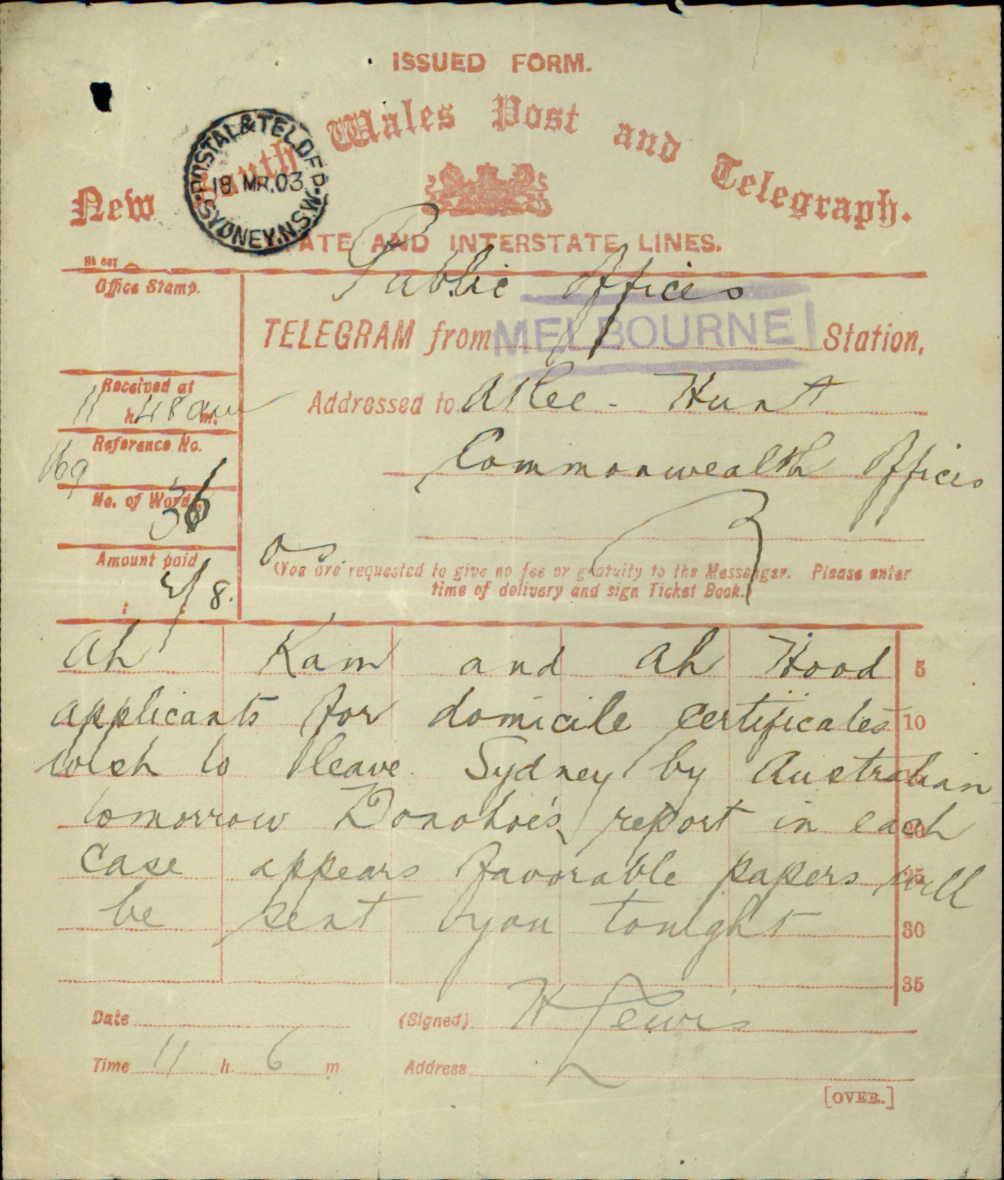 ISSUED FORM.
New South Wales Post and Telegraph.
POSTAL & TEL. OFF.
18 MR.03
SYDNEY.N.S.W
STATE AND INTERSTATE LINES.
Office Stamp.
Public Offices
TELEGRAM from MELBOURNE Station,
Received at
11 h. 48 am m.
Addressed to Atlee - Hunt
Reference No.
169
Commonwealth Offices
No. of Words
36
Amount paid
2/8.
Os.
(You are requested to give no fee or gratuity to the Messenger. Please enter
time of delivery and sign Ticket Book.)
Ah Kam and Ah Hood 5
applicants for domicile certificates 10
wish to leave Sydney by Australian
tomorrow Donohoe's report in each 20
case appears favorable papers will 25
be sent you tonight 30
35
Date
(Signed) H Lewis
Time 11 h. 6 m
Address
[OVER.]